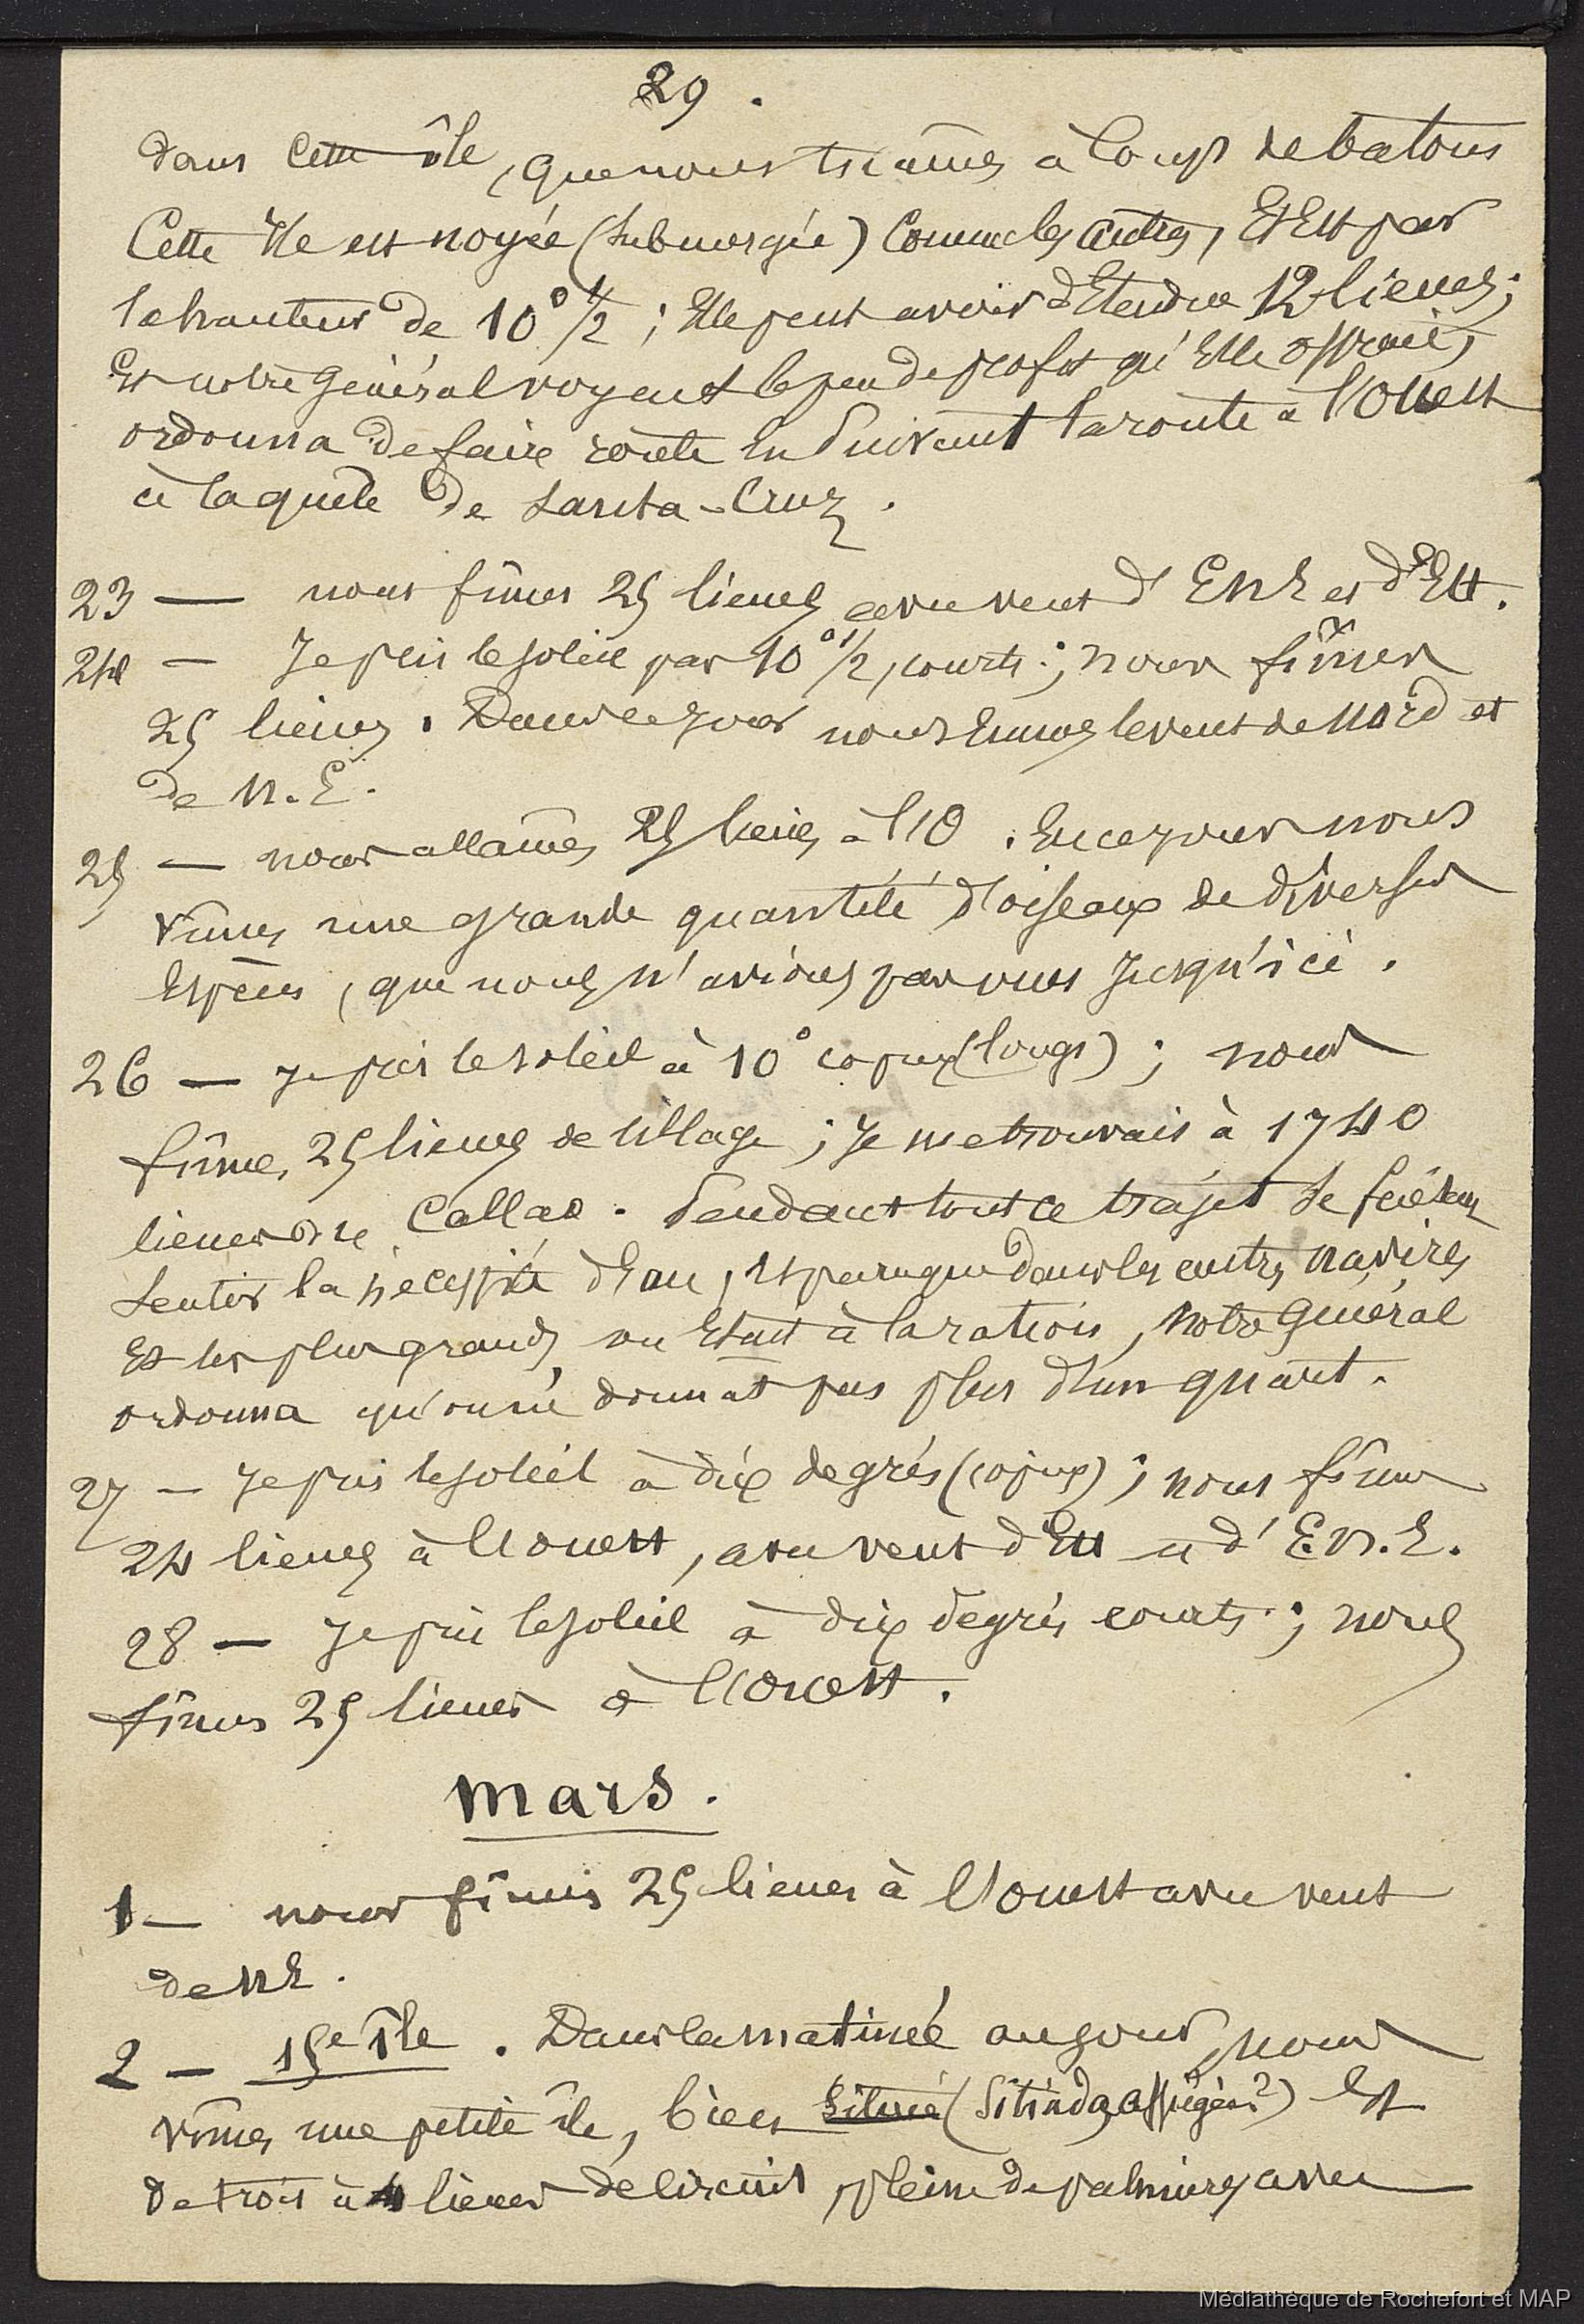 29.
dans cette île, que nous tuâmes à coups de batons
Cette Ile est noyée (submergée) comme les autres, Et Est par
la hauteur de 10°½ ; Elle peut avoir d'Etendue 12 lieues ;
Et notre Général voyant le peu de profit qu'Elle offrait,
ordonna de faire route En suivant la route à l'Ouest
à la quête de Santa-Cruz.
23 — nous fîmes 25 lieues avec vent d'ENE et d'Est.
24 — Je pris le soleil par 10°½, courts ; nous fîmes
25 lieues. Dans ce jour nous Eumes le vent de Nord et
de N.E.
25 — nous allâmes 25 lieues à l'O. En ce jour nous
vîmes une grande quantité d'oiseaux de diverses
Espèces, que nous n'avions pas vues jusqu'ici.
26 — je pris le soleil à 10° copux (longs) ; nous
fîmes 25 lieues de sillage ; Je me trouvais à 1740
lieues de Callao. Pendant tout ce trajet se fit
sentir la nécessité d'Eau, Et parce que dans les autres navires
Et les plus grands on Etait à la ration, Notre Général
ordonna qu'on ne donnat pas plus d'un quart.
27 — Je pris le soleil à dix degrés (copux) ; nous fîmes
24 lieues à l'ouest, avec vent d'Est et d'E.N.E.
28 — Je pris le soleil à dix degrés courts ; nous
fîmes 25 lieues à l'Ouest.
Mars.
1 — nous fîmes 25 lieues à l'Ouest avec vent
de NE.
2 — 15e île. Dans la matinée au jour, nous
vîmes une petite île, bien située (sitiada, assiégée?) Et
de trois à 4 lieues de circuit, pleine de palmiers avec